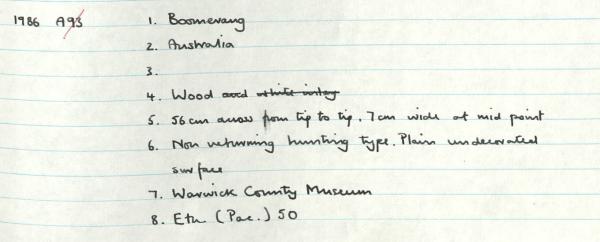 1986 A93 1. Boomerang
2. Australia
3.
4. Wood and white inlay
5. 56cm across from tip to tip. 7cm wide at mid point
6. Non returning hunting type. Plain undecorated
surface
7. Warwick County Museum
8. Etn (Pac.) 50